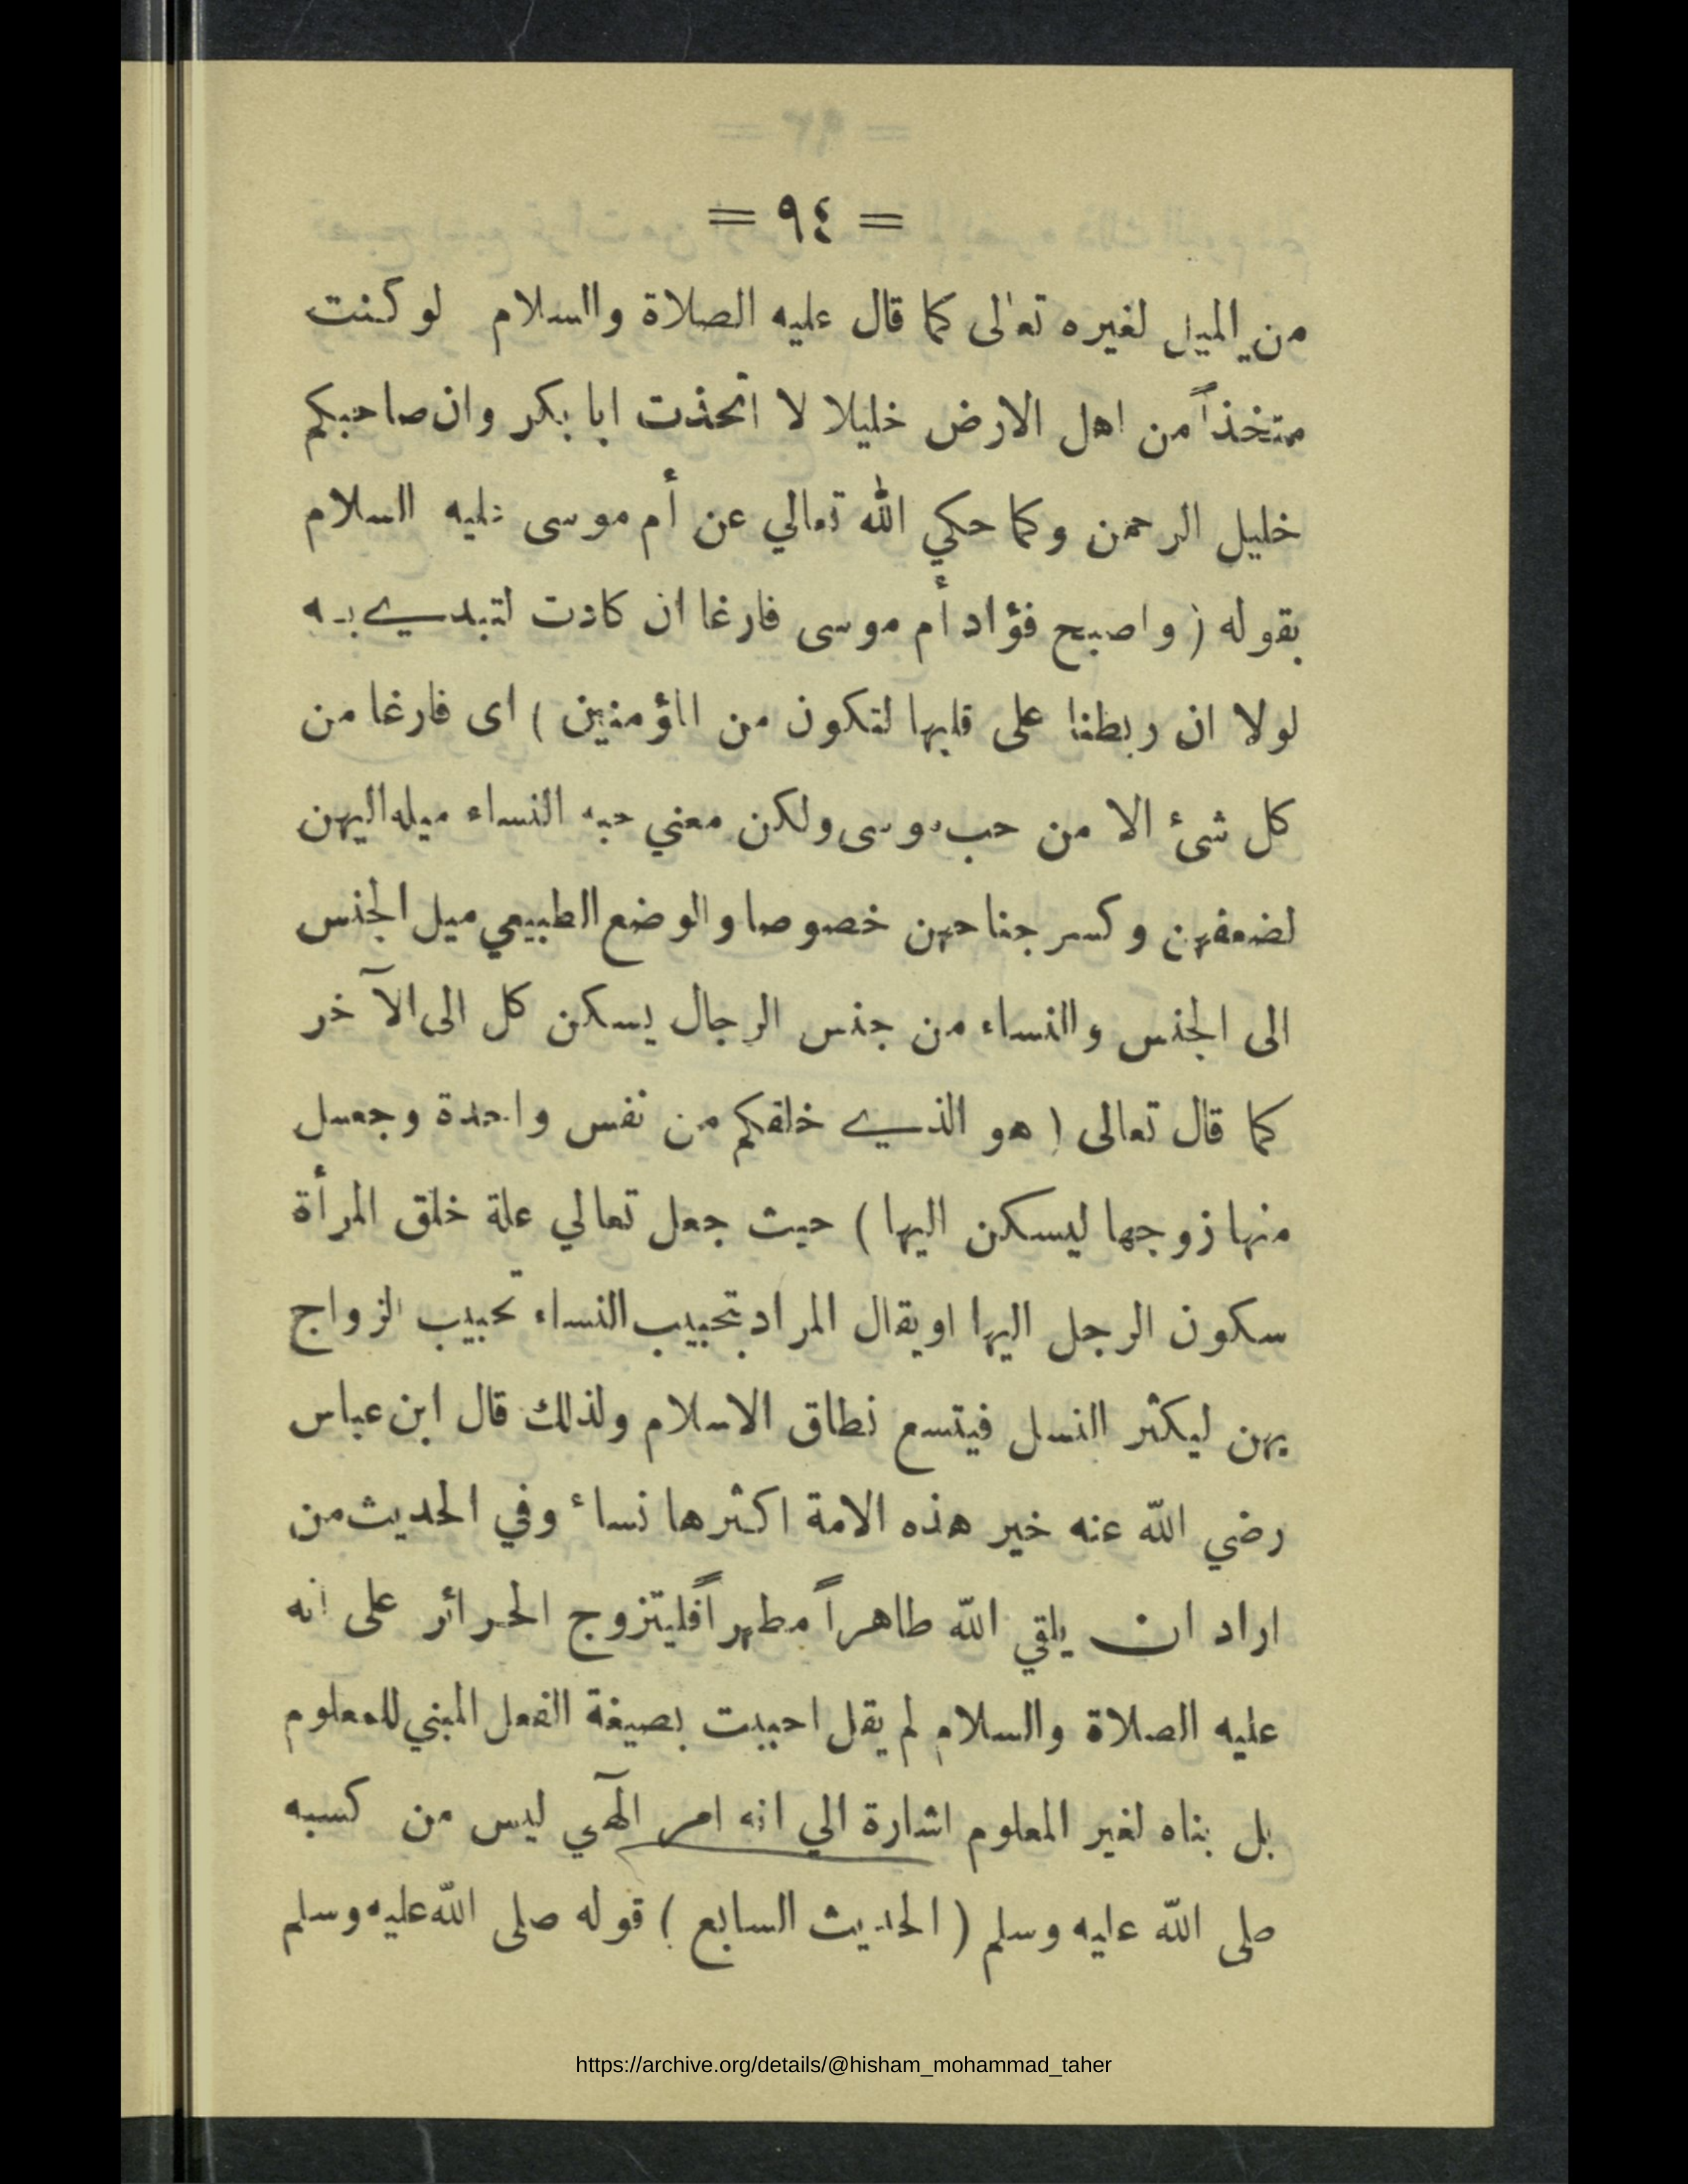 = ٩٤ =
من الميل لغيره تعالى كما قال عليه الصلاة والسلام لو كنت
متخذاً من اهل الارض خليلا لا اتخذت ابا بكر وان صاحبكم
خليل الرحمن وكما حكي الله تعالي عن أم موسى عليه السلام
بقوله ( واصبح فؤاد أم موسى فارغا ان كادت لتبدي به
لولا ان ربطنا على قلبها لتكون من المؤمنين ) اى فارغا من
كل شئ الا من حب موسى ولكن معني حبه النساء ميله اليهن
لضعفهن وكسر جناحهن خصوصا والوضع الطبيعي ميل الجنس
الى الجنس والنساء من جنس الرجال يسكن كل الى الآخر
كما قال تعالى ( هو الذي خلقكم من نفس واحدة وجعل
منها زوجها ليسكن اليها ) حيث جعل تعالي علة خلق المرأة
سكون الرجل اليها او يقال المراد بتحبيب النساء تحبيب الزواج
بهن ليكثر النسل فيتسع نطاق الاسلام ولذلك قال ابن عباس
رضي الله عنه خير هذه الامة اكثرها نساء وفي الحديث من
اراد ان يلقي الله طاهراً مطهراً فليتزوج الحرائر على انه
عليه الصلاة والسلام لم يقل احببت بصيغة الفعل المبني للمعلوم
بل بناه لغير المعلوم اشارة الي انه امر الٓهي ليس من كسبه
صلى الله عليه وسلم ( الحديث السابع ) قوله صلى الله عليه وسلم
https://archive.org/details/@hisham_mohammad_taher